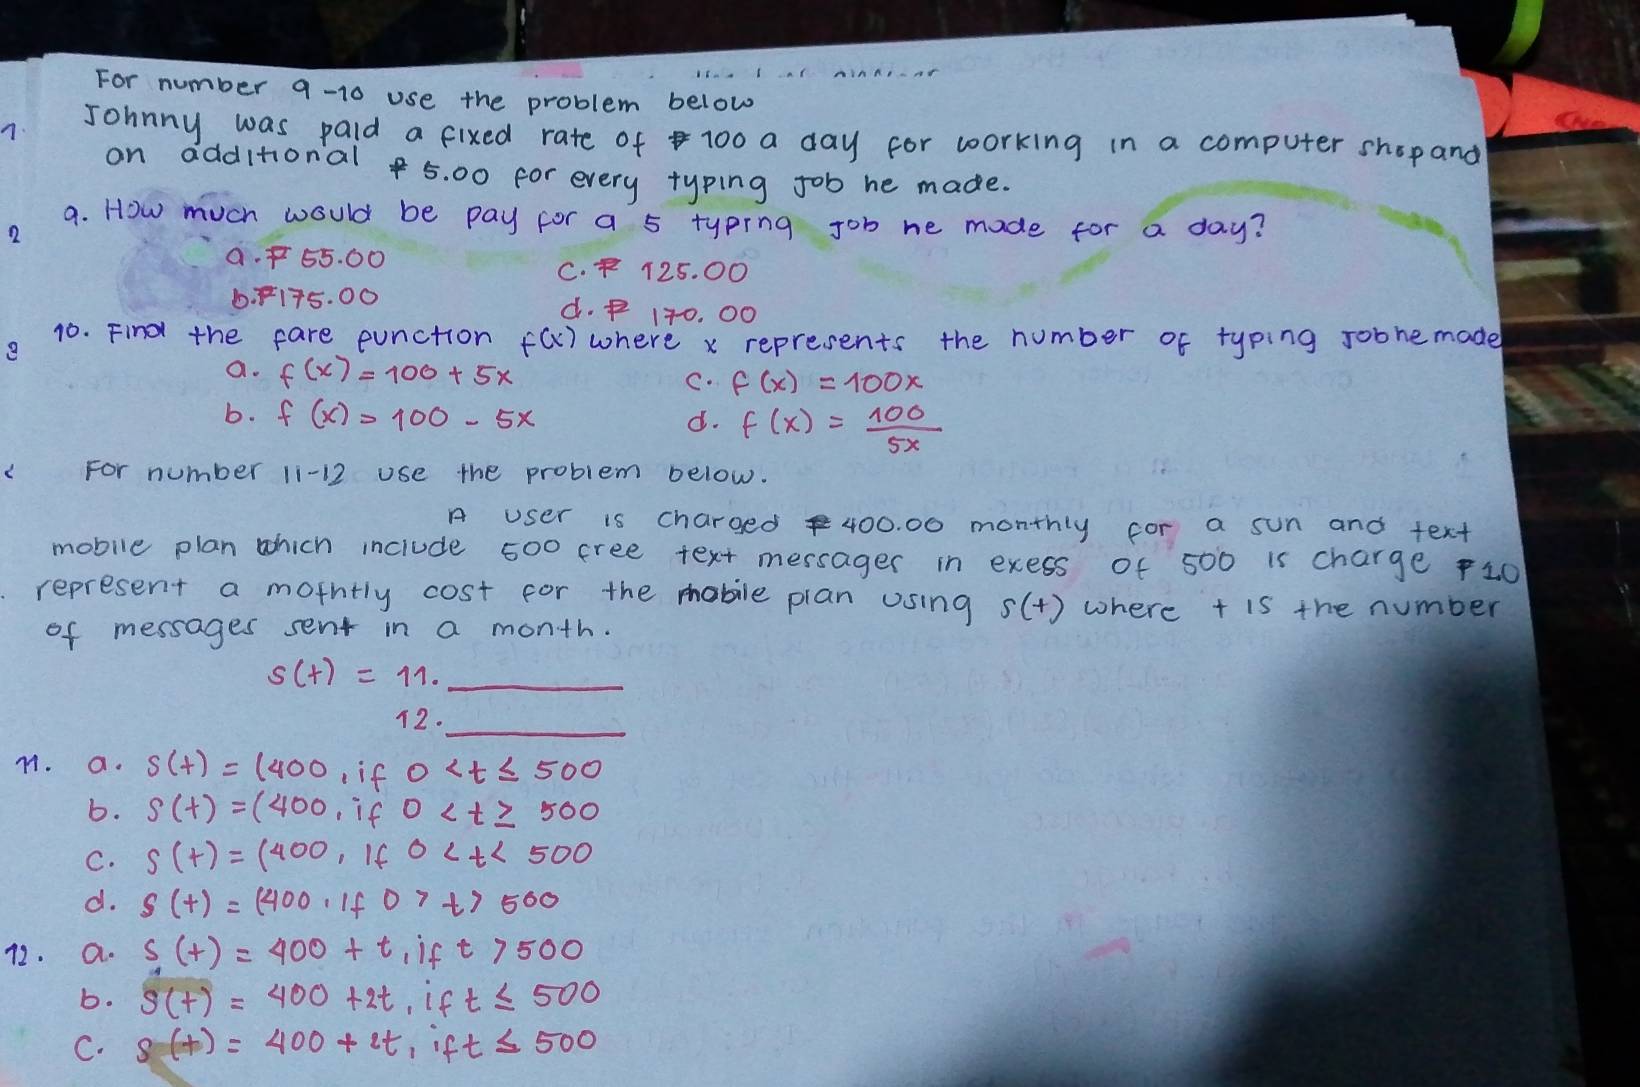 For number 9-10 use the problem below
1.
Johnny was paid a fixed rate of ₱ 100 a day for working in a computer shop and
an additional ₱ 5.00 for every typing job he made.
2
9. How much would be pay for a 5 typing job he made for a day?
a. ₱ 55.00
c. ₱ 125.00
b. ₱175.00
d. ₱ 170.00
3
10. Find the fare function f(x) where x represents the number of typing job he made
a. f(x) = 100 + 5x
c. f(x) = 100x
b. f (x) = 100 - 5x
d. f(x) = 100/5x
For number 11-12 use the problem below.
A user is charged ₱ 400.00 monthly for a sun and text
mobile plan which include 500 free text messages in exess of 500 is charge ₱ 1.0
represent a mothtly cost for the mobile plan using s(t) where t is the number
of messages sent in a month.
s(t) = 11. ________
12. ________
11. a. s(t) = (400, if 0 < t ≤ 500
b. s(t) = (400, if 0 < t ≥ 500
c. s(t) = (400, if 0 < t < 500
d. s(t) = (400, if 0 > t > 500
12. a. s(t) = 400 + t, if t > 500
b. s(t) = 400 + 2t, if t ≤ 500
c. s(t) = 400 + 2t, if t ≤ 500